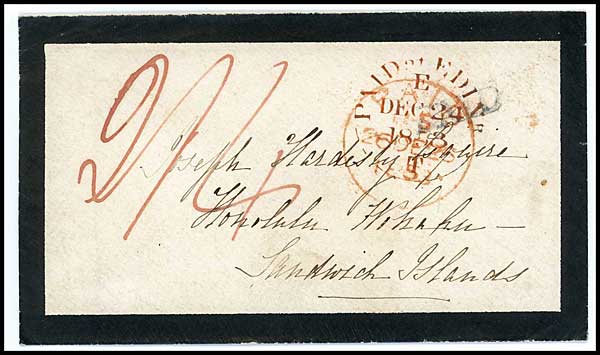 2/4
PAID at EDI
E
DEC 24
1853
Joseph Hardisty Esquire
Honolulu
Sandwich Islands